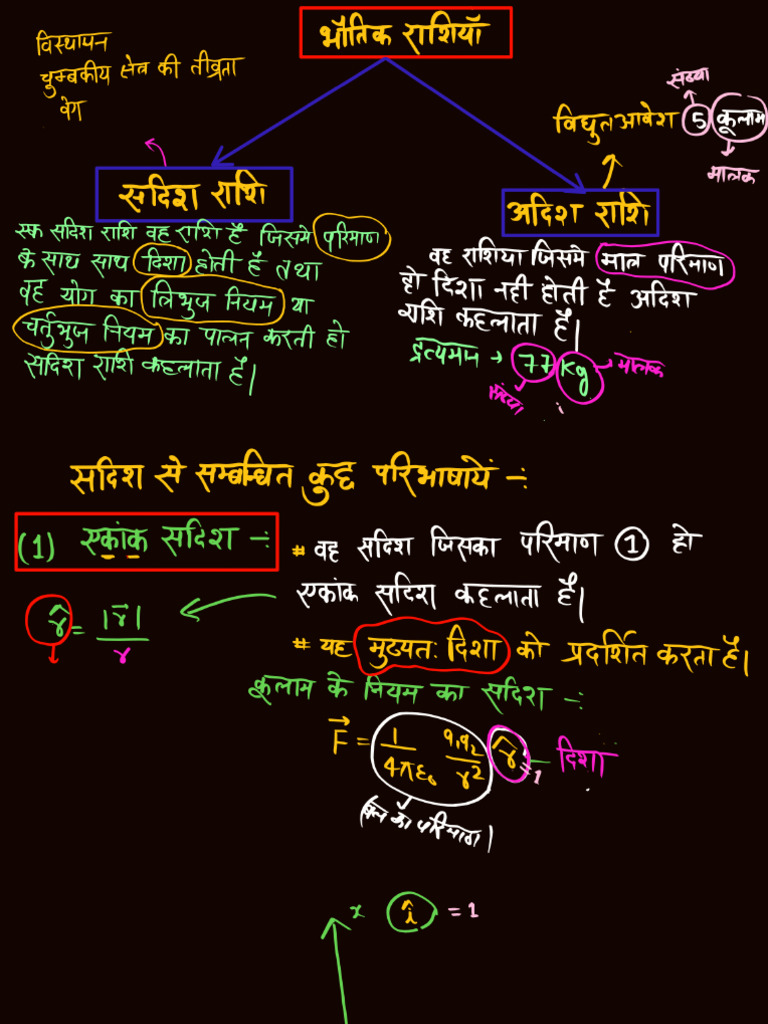 भौतिक राशियाँ
विस्थापन
चुम्बकीय क्षेत्र की तीव्रता
वेग
संख्या
विद्युत आवेश 5 कूलाम
मात्रक
सदिश राशि
एक सदिश राशि वह राशि है जिसमे परिमाण
के साथ साथ दिशा होती है तथा
वह योग का त्रिभुज नियम या
चर्तुभुज नियम का पालन करती हो
सदिश राशि कहलाता है।
अदिश राशि
वह राशिया जिसमे मात्र परिमाण
हो दिशा नही होती है अदिश
राशि कहलाता है।
द्रव्यमान → 77 kg → मात्रक
संख्या
सदिश से सम्बन्धित कुछ परिभाषायें -:
(1) एकांक सदिश -:
# वह सदिश जिसका परिमाण 1 हो
एकांक सदिश कहलाता है।
r̂ = |r⃗| / r
# यह मुख्यतः दिशा को प्रदर्शित करता है।
कूलाम के नियम का सदिश -:
F⃗ = 1/4πε₀ q₁q₂/r² r̂ = 1 - दिशा
(बल का परिमाण)
x î = 1